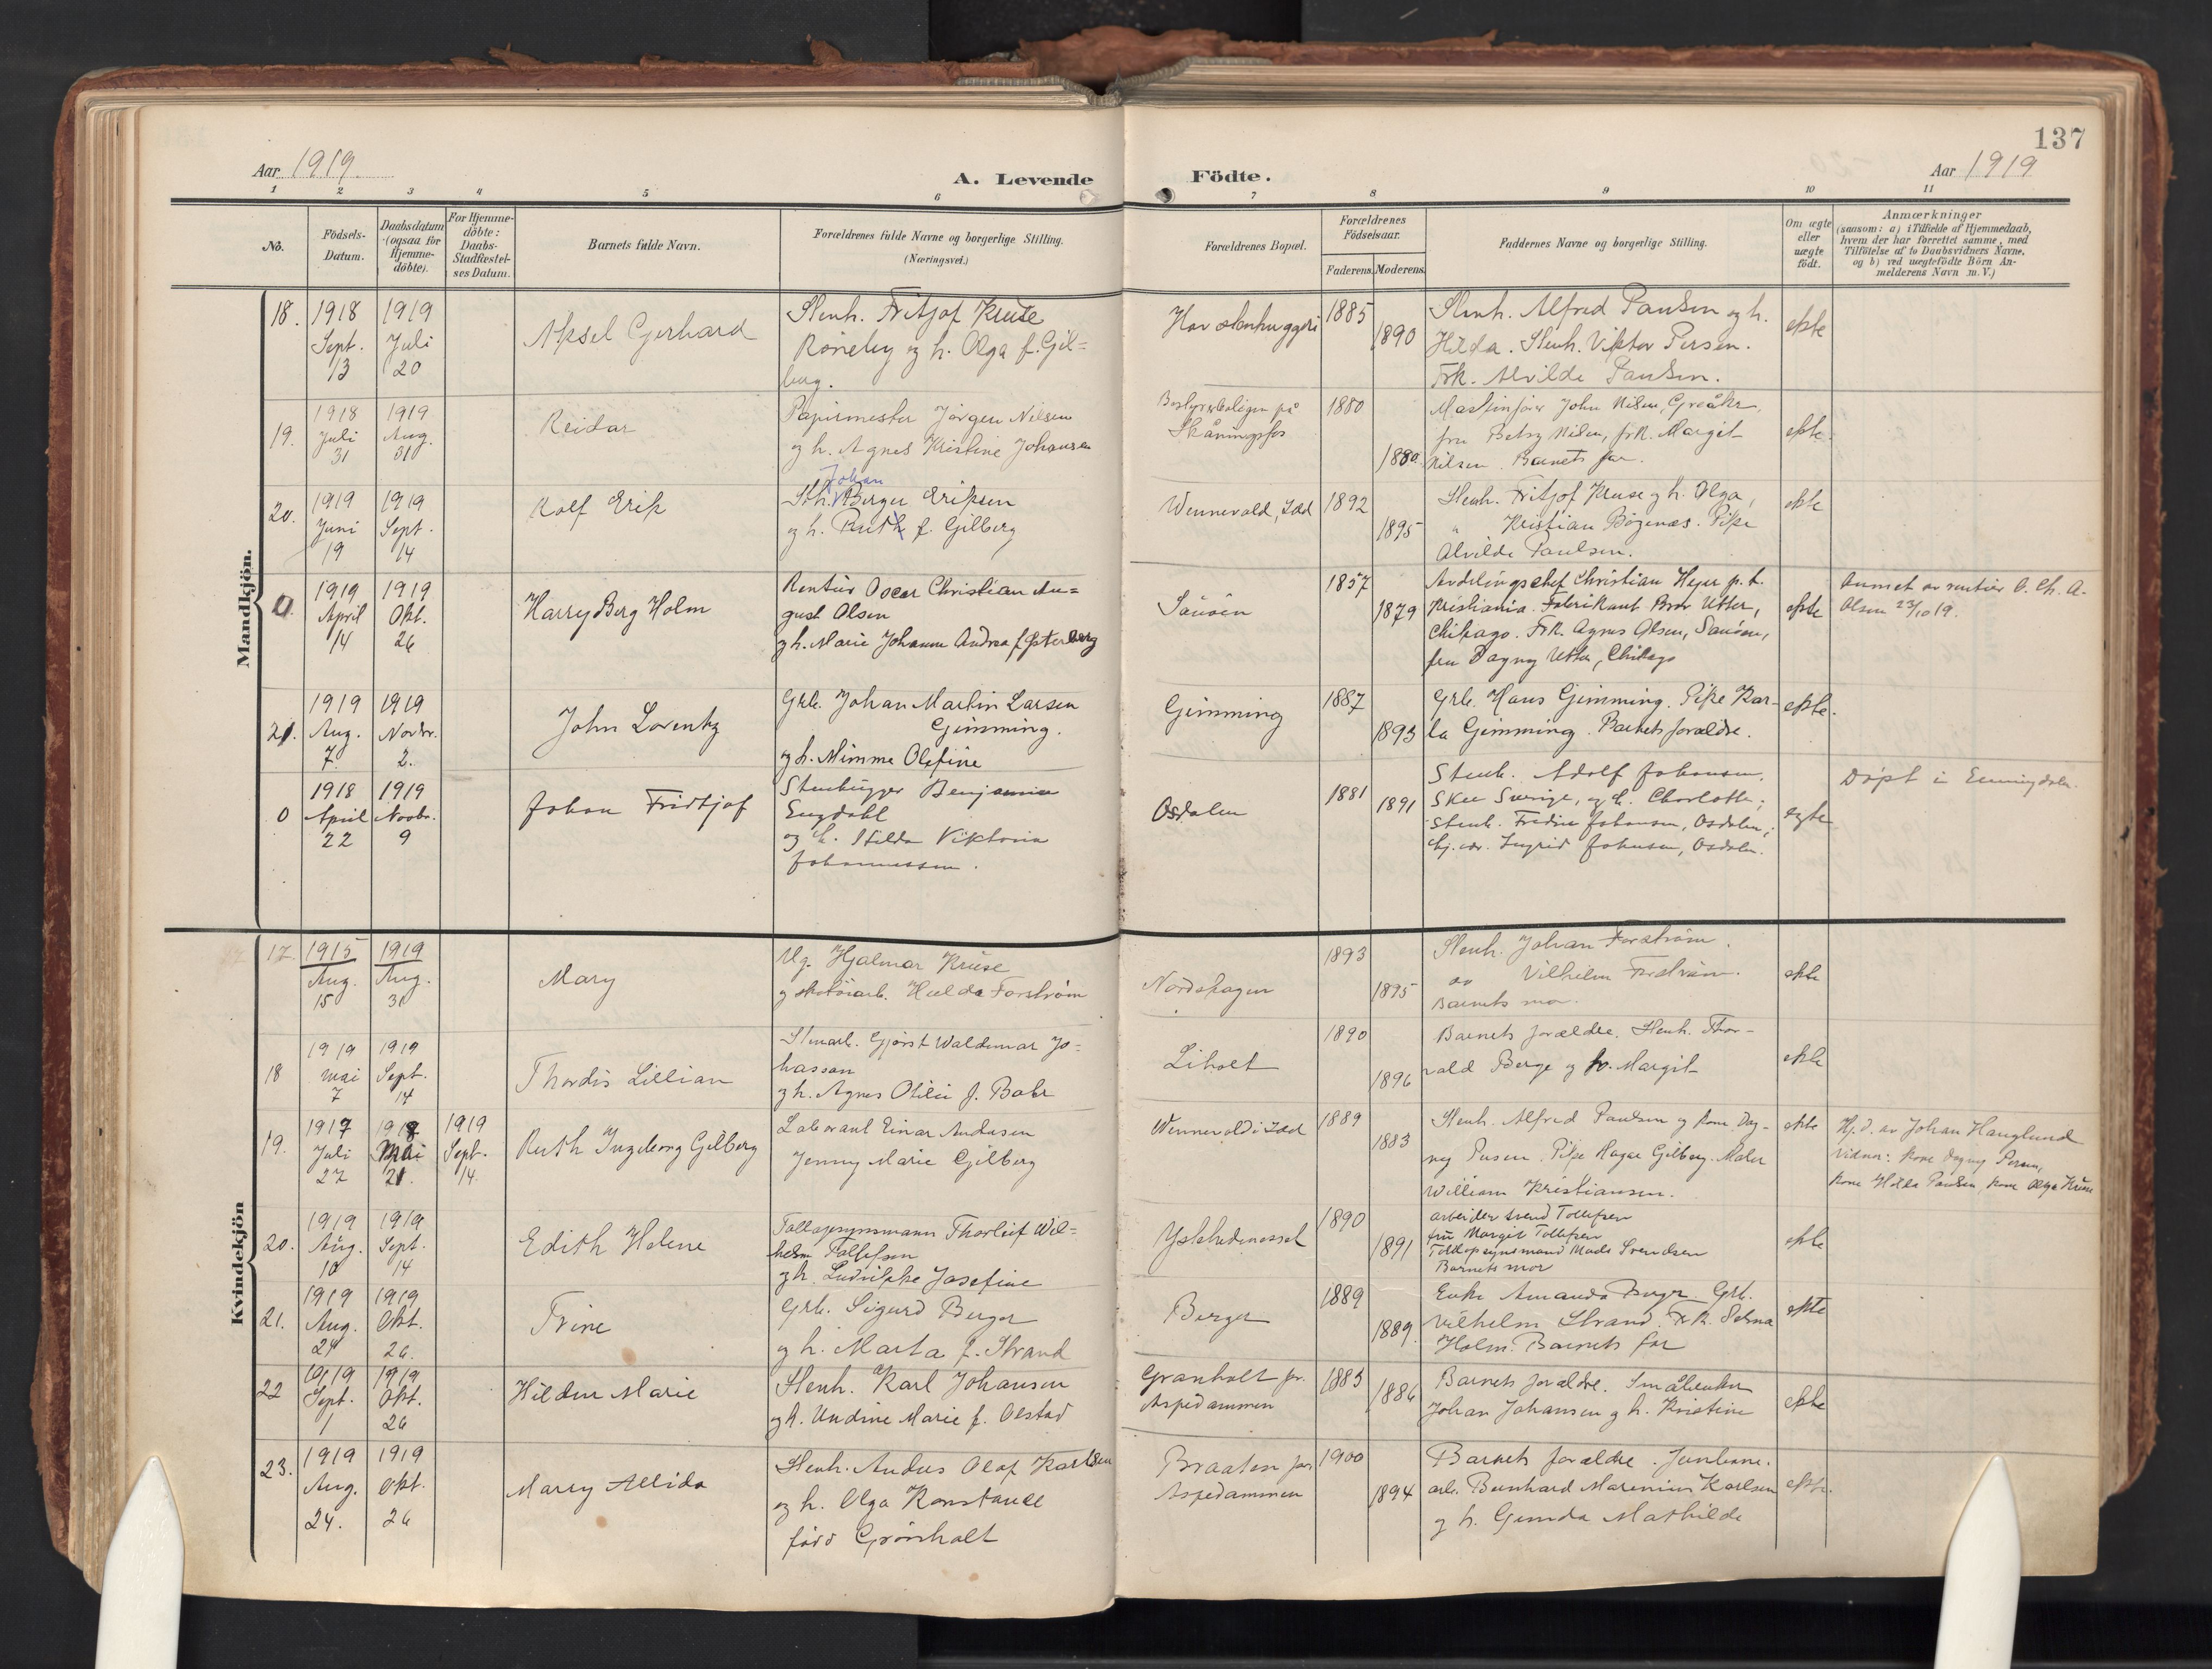 137
Aar 1919.
A. Levende Födte.
Aar 1919
1 2 3 4 5 6 7 8 9 10 11
No.
Födsels-
Datum.
Daabsdatum
(ogsaa for
Hjemme-
döbte).
For Hjemme-
döbte:
Daabs-
Stadfæstel-
ses Datum.
Barnets fulde Navn.
Forældrenes fulde Navne og borgerlige Stilling.
(Næringsvei.)
Forældrenes Bopæl.
Forældrenes
Födselsaar.
Faderens. Moderens.
Faddernes Navne og borgerlige Stilling.
Om ægte
eller
uægte
födt.
Anmærkninger
(saasom: a) i Tilfælde af Hjemmedaab,
hvem der har forrettet samme, med
Tilföielse af to Daabsvidners Navne,
og b) ved uægtefödte Börn An-
melderens Navn m. V.)
Mandkjön.
18.
1918
Sept.
13
1919
Juli
20
Aksel Gerhard
Stenh. Fritjof Kruse
Röneby og h. Olga f. Gil=
berg.
Hov stenhuggeri
1885
1890
Stenh. Alfred Paulsen og h.
Hilda. Stenh. Viktor Persen.
Frk. Alvilde Paulsen.
ekte
19.
1918
Juli
31
1919
Aug.
31
Reidar
Papirmester Jörgen Nilsen
og h. Agnes Kristine Johansen
Bestyrerboligen på
Skåningsfos
1880
1880
Maskinfører John Nilsen, Greåker,
fru Betsy Nilsen, frk. Margit
Nilsen. Barnets far.
ekte.
20.
1919
Juni
19
1919
Sept.
14
Rolf Erik
Johan
Sth. Berger Eriksen
og h. Ruth f. Gilberg
Wennevold, Idd
1892
1895
Stenh. Fritjof Kruse og h. Olga,
" Kristian Bögenæs. Pike
Alvilde Paulsen.
ekte
0
1919
April
14
1919
Okt.
26
Harry Berg Holm
Rentier Oscar Christian Au=
gust Olsen
og h. Marie Johanne Andrea f. Østerberg
Sauöen
1857
1879
Avdelingschef Christian Heyer p.t.
Kristiania. Fabrikant Bror Utter,
Chikago. Frk. Agnes Olsen, Sauöen,
fru Dagny Utter, Chikago
ekte
Anmet av rentier O. Ch. A.
Olsen 23/10 19.
21.
1919
Aug.
7.
1919
Novbr.
2.
John Lorentz
Grb. Johan Martin Larsen
Gimming.
og h. Mimmi Olefine
Gimming
1887
1893
Grb. Hans Gimming. Pike Kar-
la Gimming. Barnets forældre.
ekte.
0
1918
April
22
1919
Novbr.
9
Johan Fridtjof
Stenhugger Benjamin
Engdahl
og h. Hilda Viktoria
Johannessen.
Osdalen
1881
1891
Stenh. Adolf Johansen,
Skee Sverige, og h. Charlotte;
Stenh. Fredin Johansen, Osdalen;
Ingrid Johansen, Osdalen.
egte
Döpt i Enningdalen.
Kvindekjön
17.
1915
Aug.
15
1919
Aug.
31
Mary
Ug. Hjalmar Kruse
og skotöiarb. Hulda Forström
Nordshagen
1893
1895
Stenh. Johan Forström.
" Vilhelm Forström.
Barnets mor.
ekte
18
1919
Mai
7
1919
Sept.
14
Thordis Lillian
Stenarb. Gjörst Waldemar Jo=
hasson
og h. Agnes Otilie f. Bohr
Liholt
1890
1896
Barnets forældre. Stenh. Thor-
vald Berge og fr. Margit
ekte
19.
1917
Juli
27
1918
Mai
21.
1919
Sept.
14.
Ruth Ingeborg Gilberg
Laborant Einar Andersen
Jenny Marie Gilberg
Wennevold i Idd
1889
1883
Stenh. Alfred Paulsen og kone Dag-
ny Persen. Pike Ragna Gilberg. Maler
William Kristiansen.
ekte
Hj.d. av Johan Hauglund
Vidner: Kone Dagny Persen,
Kone Hilda Paulsen, kone Olga Kruse
20.
1919
Aug.
10
1919
Sept.
14
Edith Helene
Tollopsynsmann Thorleif Wil=
helm Tollefsen
og h. Ludvikke Josefine
Ystehedenessel
1890
1891
arbeider Svend Tollefsen
fru Margit Tollefsen
Toldopsynsmand Mads Svendsen
Barnets mor
ekte
21.
1919
Aug.
24
1919
Okt.
26.
Trine
Grb. Sigurd Berger
og h. Marta f. Strand
Berger
1889
1889.
Enke Amanda Berger. Grb.
Vilhelm Strand. Frk. Selma
Holm. Barnets far
ekte
22
1919
Sept.
1
1919
Okt.
26
Hildur Marie
Stenh. Karl Johansen
og h. Undine Marie f. Olstad
Granholt pr.
Aspedammen
1883
1886
Barnets forældre. Småbruker
Johan Johansen og h. Kristine
ekte
23.
1919
Aug.
24.
1919
Okt.
26
Marry Allida
Stenh. Anders Olaf Karlsen
og h. Olga Konstance
född Grönholt
Braaten pr.
Aspedammen
1900
1894
Barnets forældre. Jernbane.
arb. Bernhard Marenius Karlsen
og h. Gunda Mathilde
ekte.